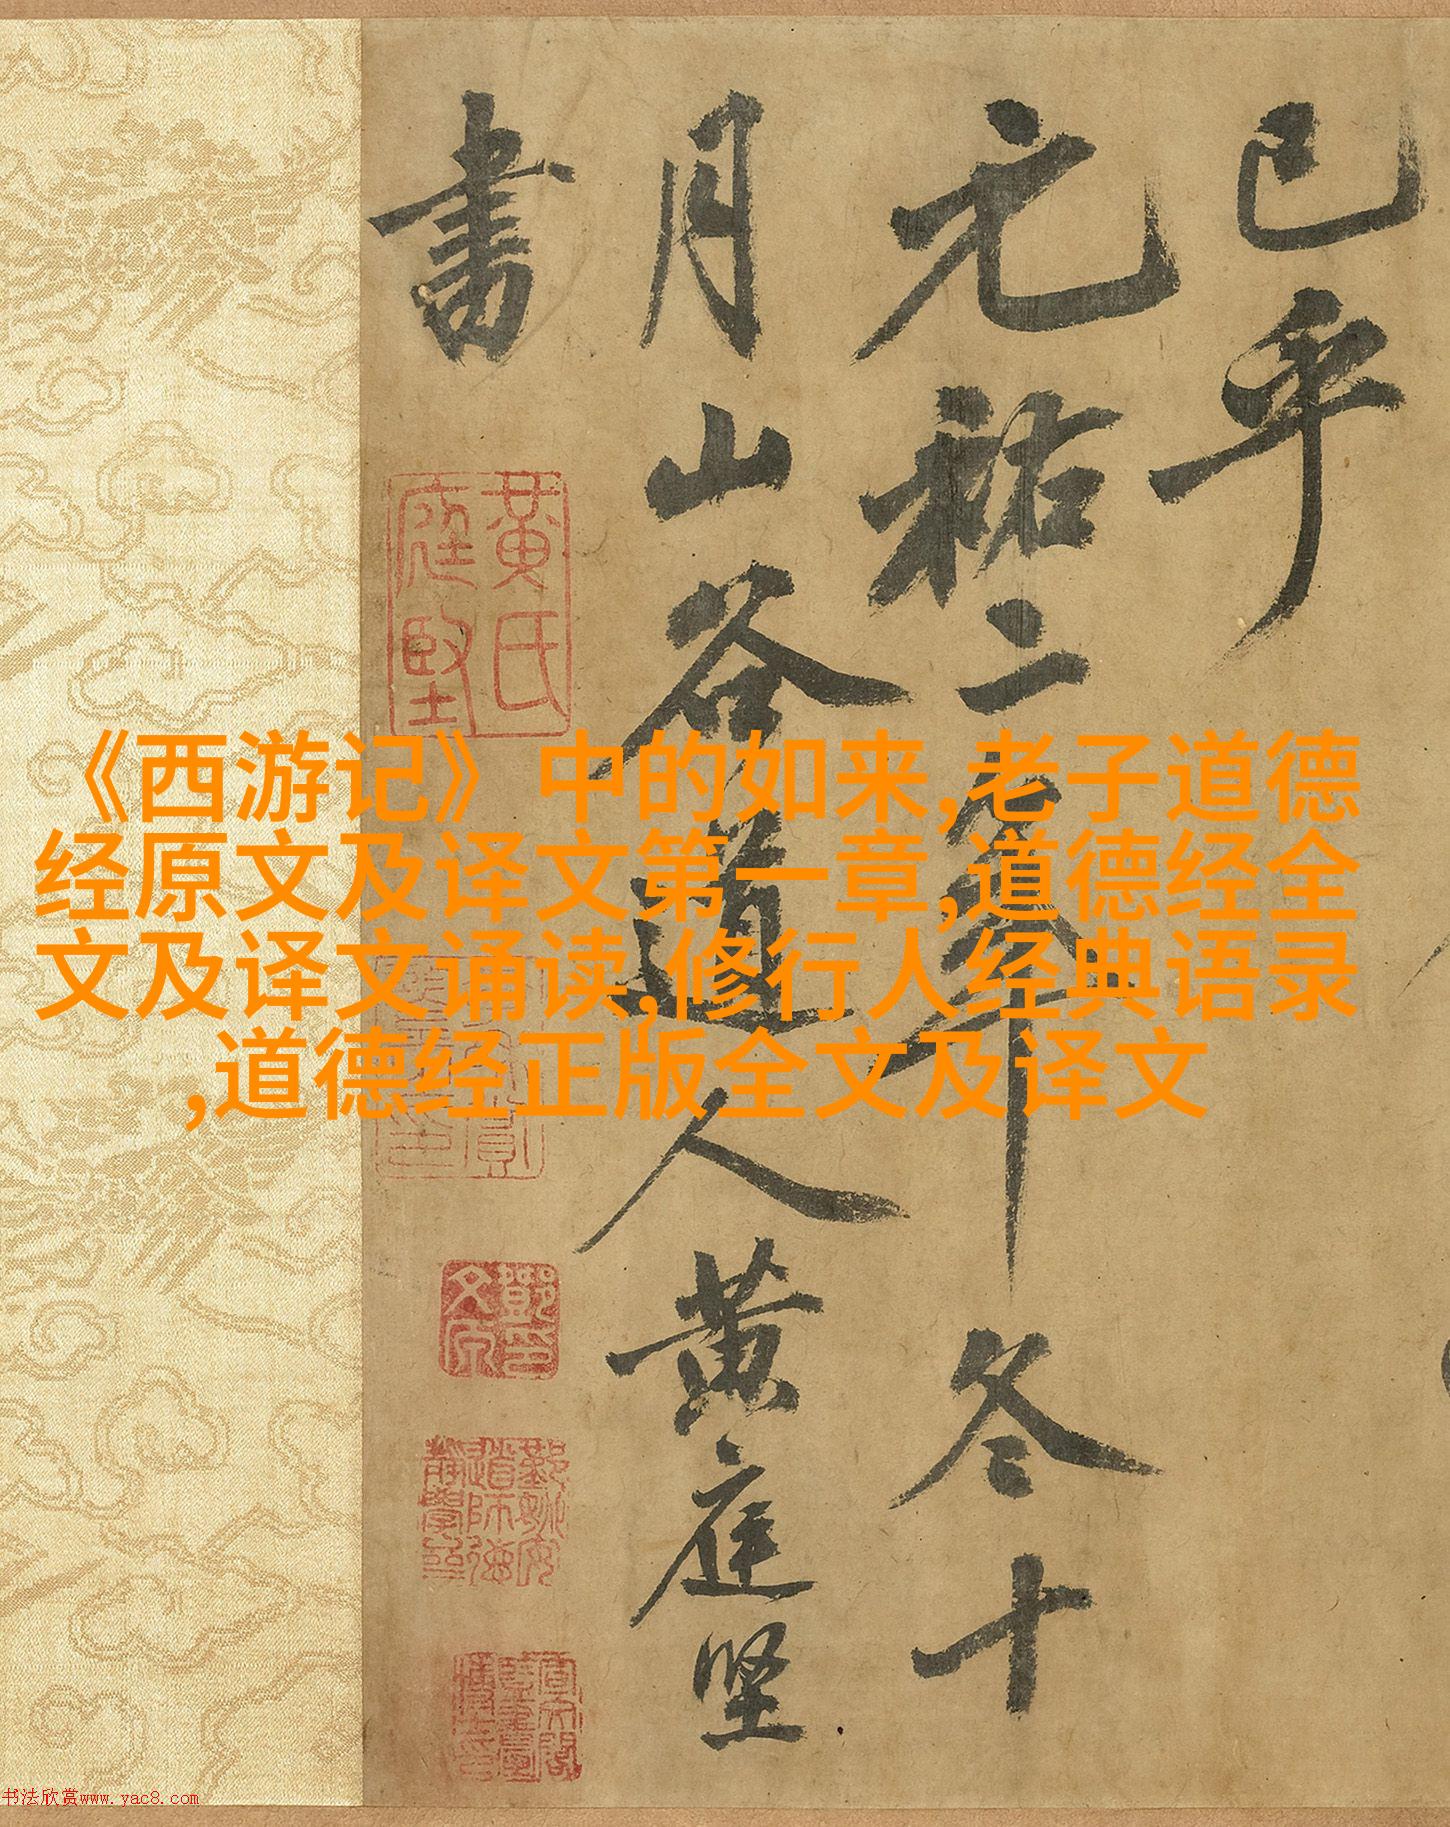 已乎
元祐二年冬十
月山谷道人黄庭坚
書
黄氏
庭堅
《西游记》中的如来,老子道德
经原文及译文第一章,道德经全
文及译文诵读,修行人经典语录
,道德经正版全文及译文
书法欣赏www.yac8.com